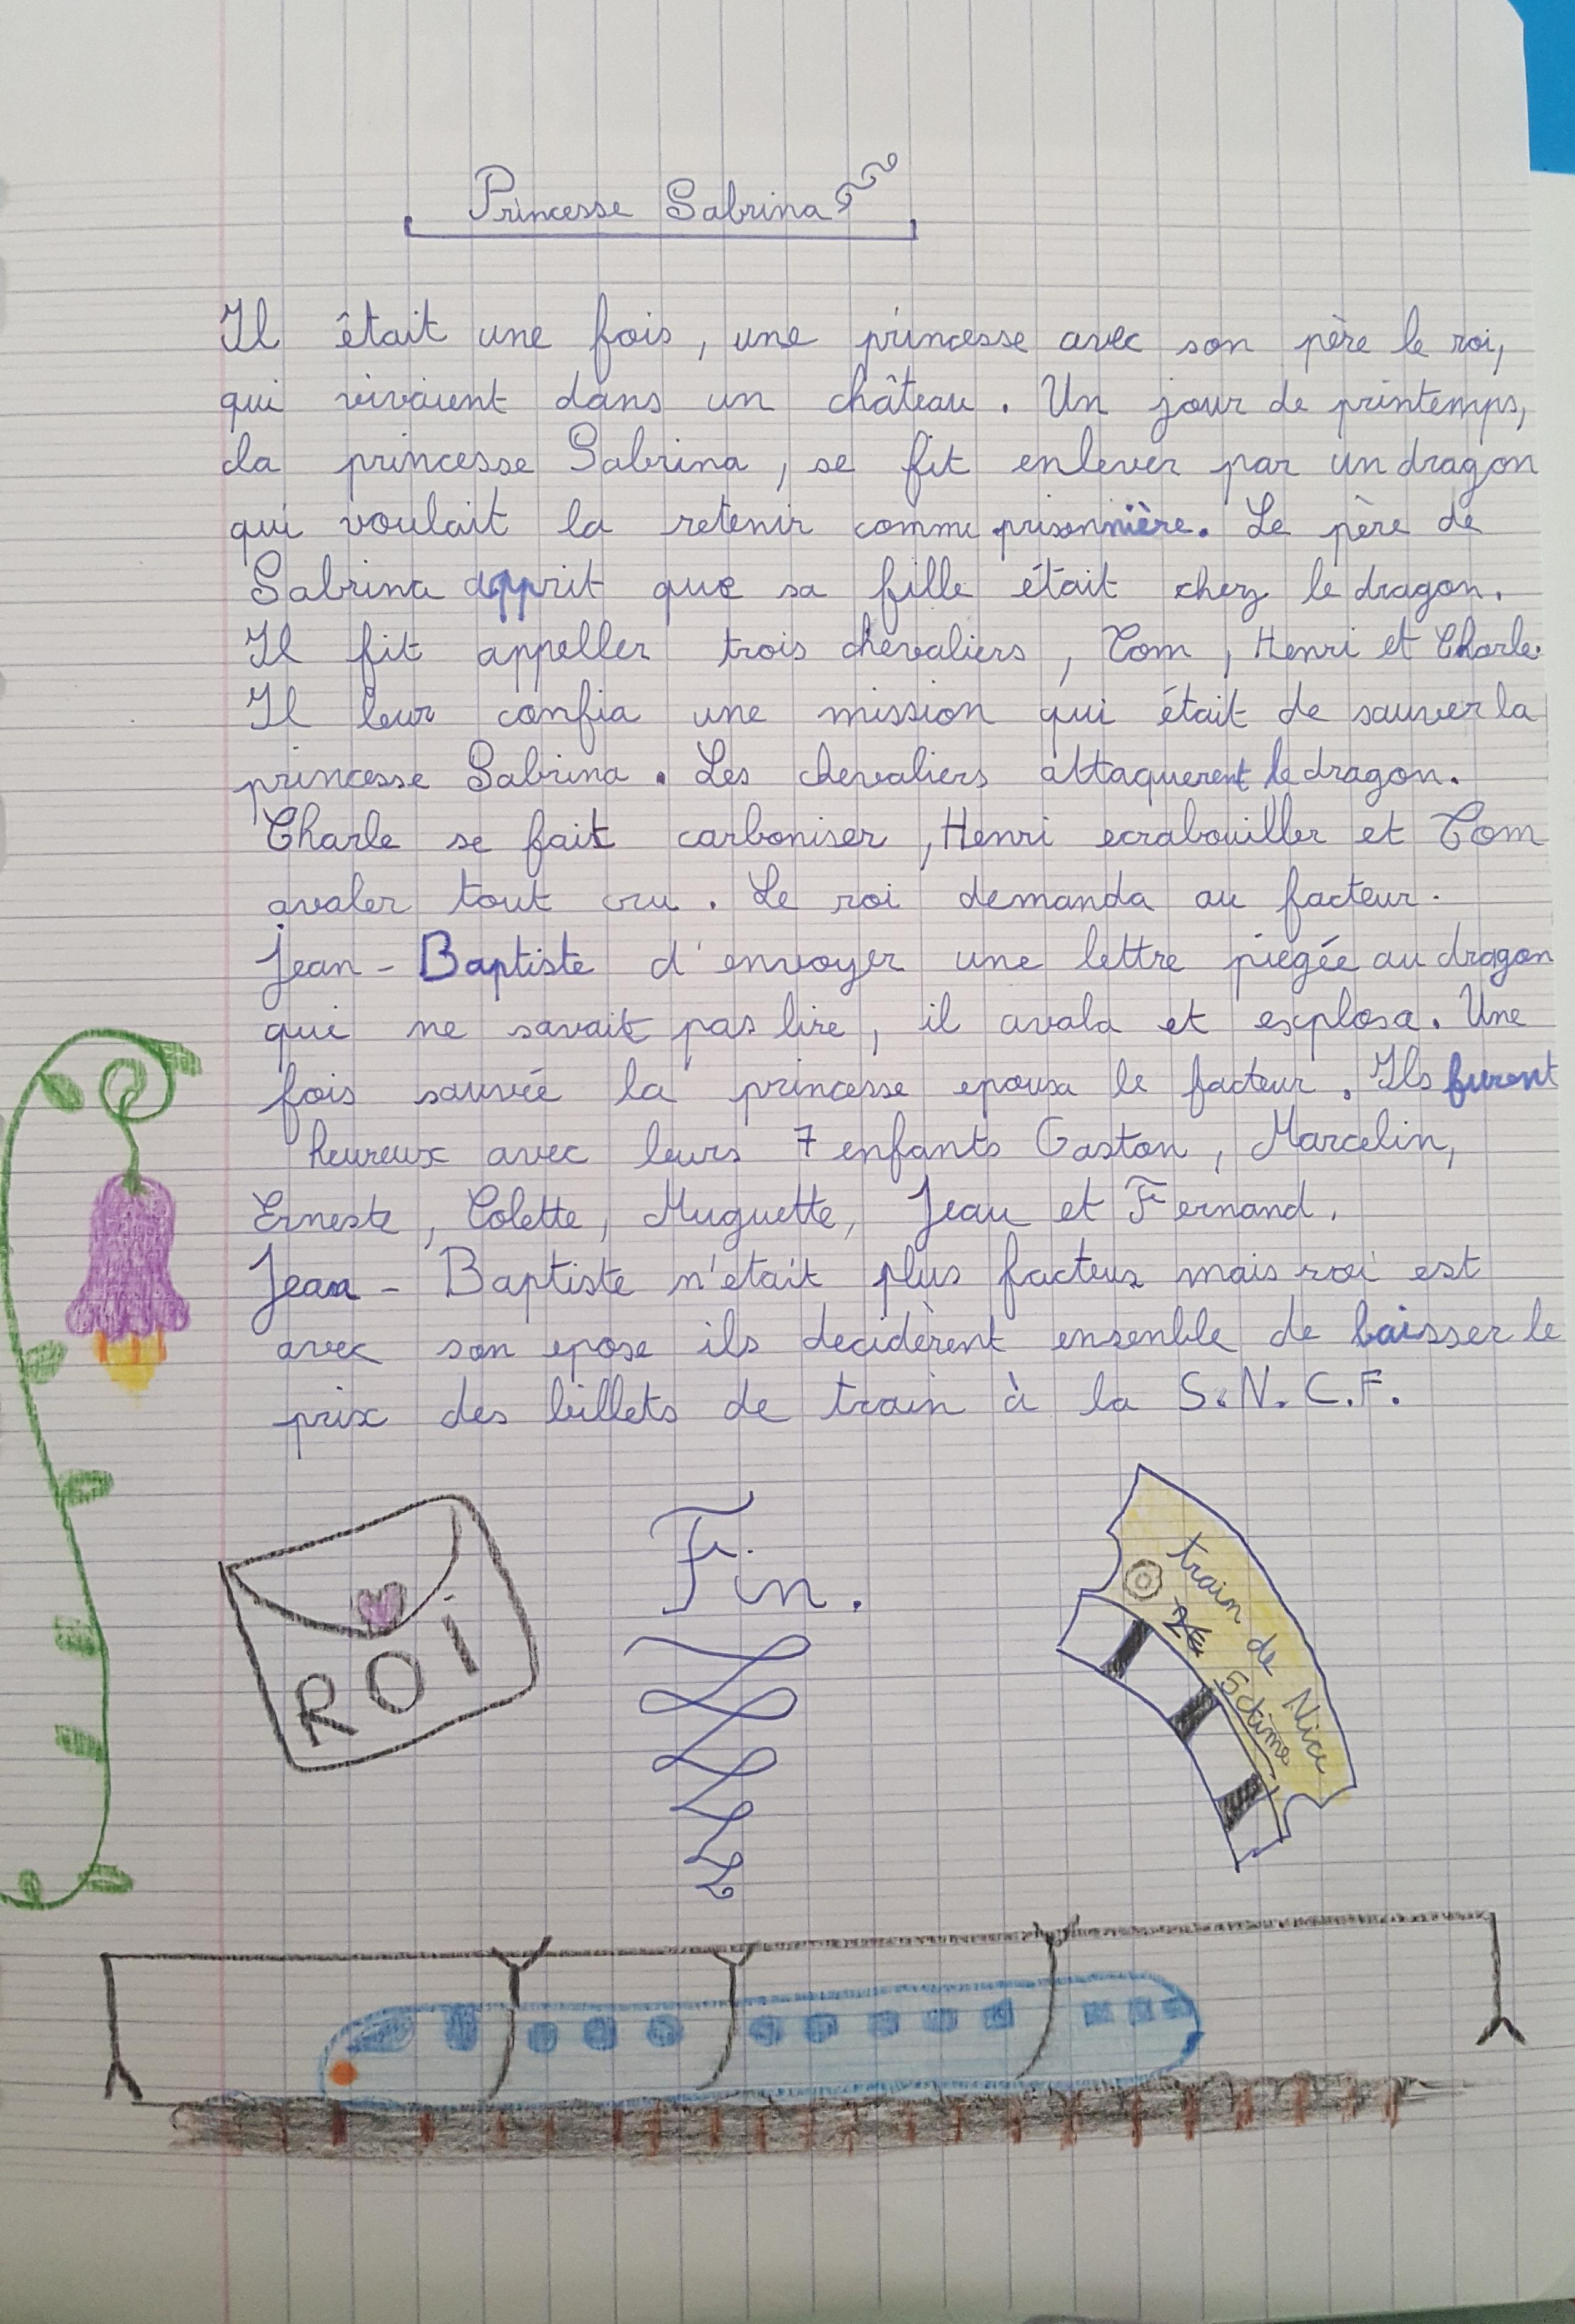 Princesse Sabrina
Il êtait une fois, une princesse avec son père le roi,
qui vivaient dans un château. Un jour de printemps,
la princesse Sabrina, se fit enlever par un dragon
qui voulait la retenir comme prisonnière. Le père de
Sabrina apprit que sa fille était chez le dragon.
Il fit appeller trois chevaliers, Tom, Henri et Charle.
Il leur confia une mission qui était de sauver la
princesse Sabrina. Les chevaliers attaquerent le dragon.
Charle se fait carboniser, Henri ecrabouiller et Tom
avaler tout cru. Le roi demanda au facteur.
Jean-Baptiste d'envoyer une lettre piegée au dragon
qui ne savait pas lire, il avala et explosa. Une
fois sauvée la princesse epousa le facteur. Ils furent
heureux avec leurs 7 enfants Gaston, Marcelin,
Erneste, Colette, Muguette, Jeau et Fernand.
Jean-Baptiste n'etait plus facteur mais roi est
avec son epose ils decidèrent ensenble de baisser le
prix des billets de train à la S.N.C.F.
Fin.
ROi
train de Nice